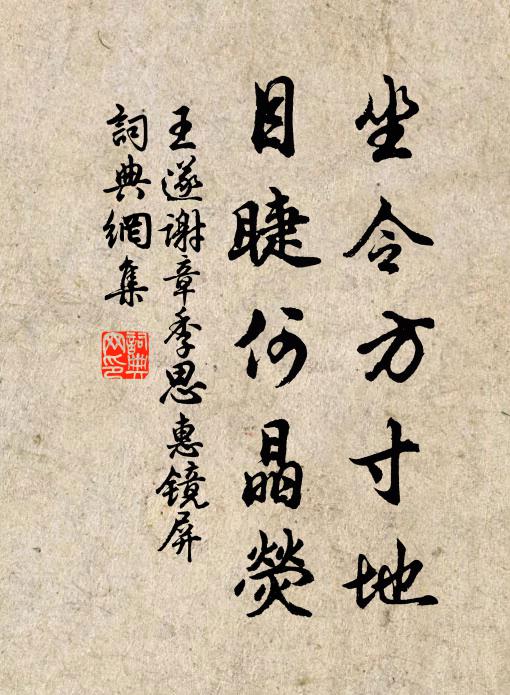 坐令方寸地
目睫何晶熒
王遂謝章季思惠镜屏
詞典網集
詞典
网印